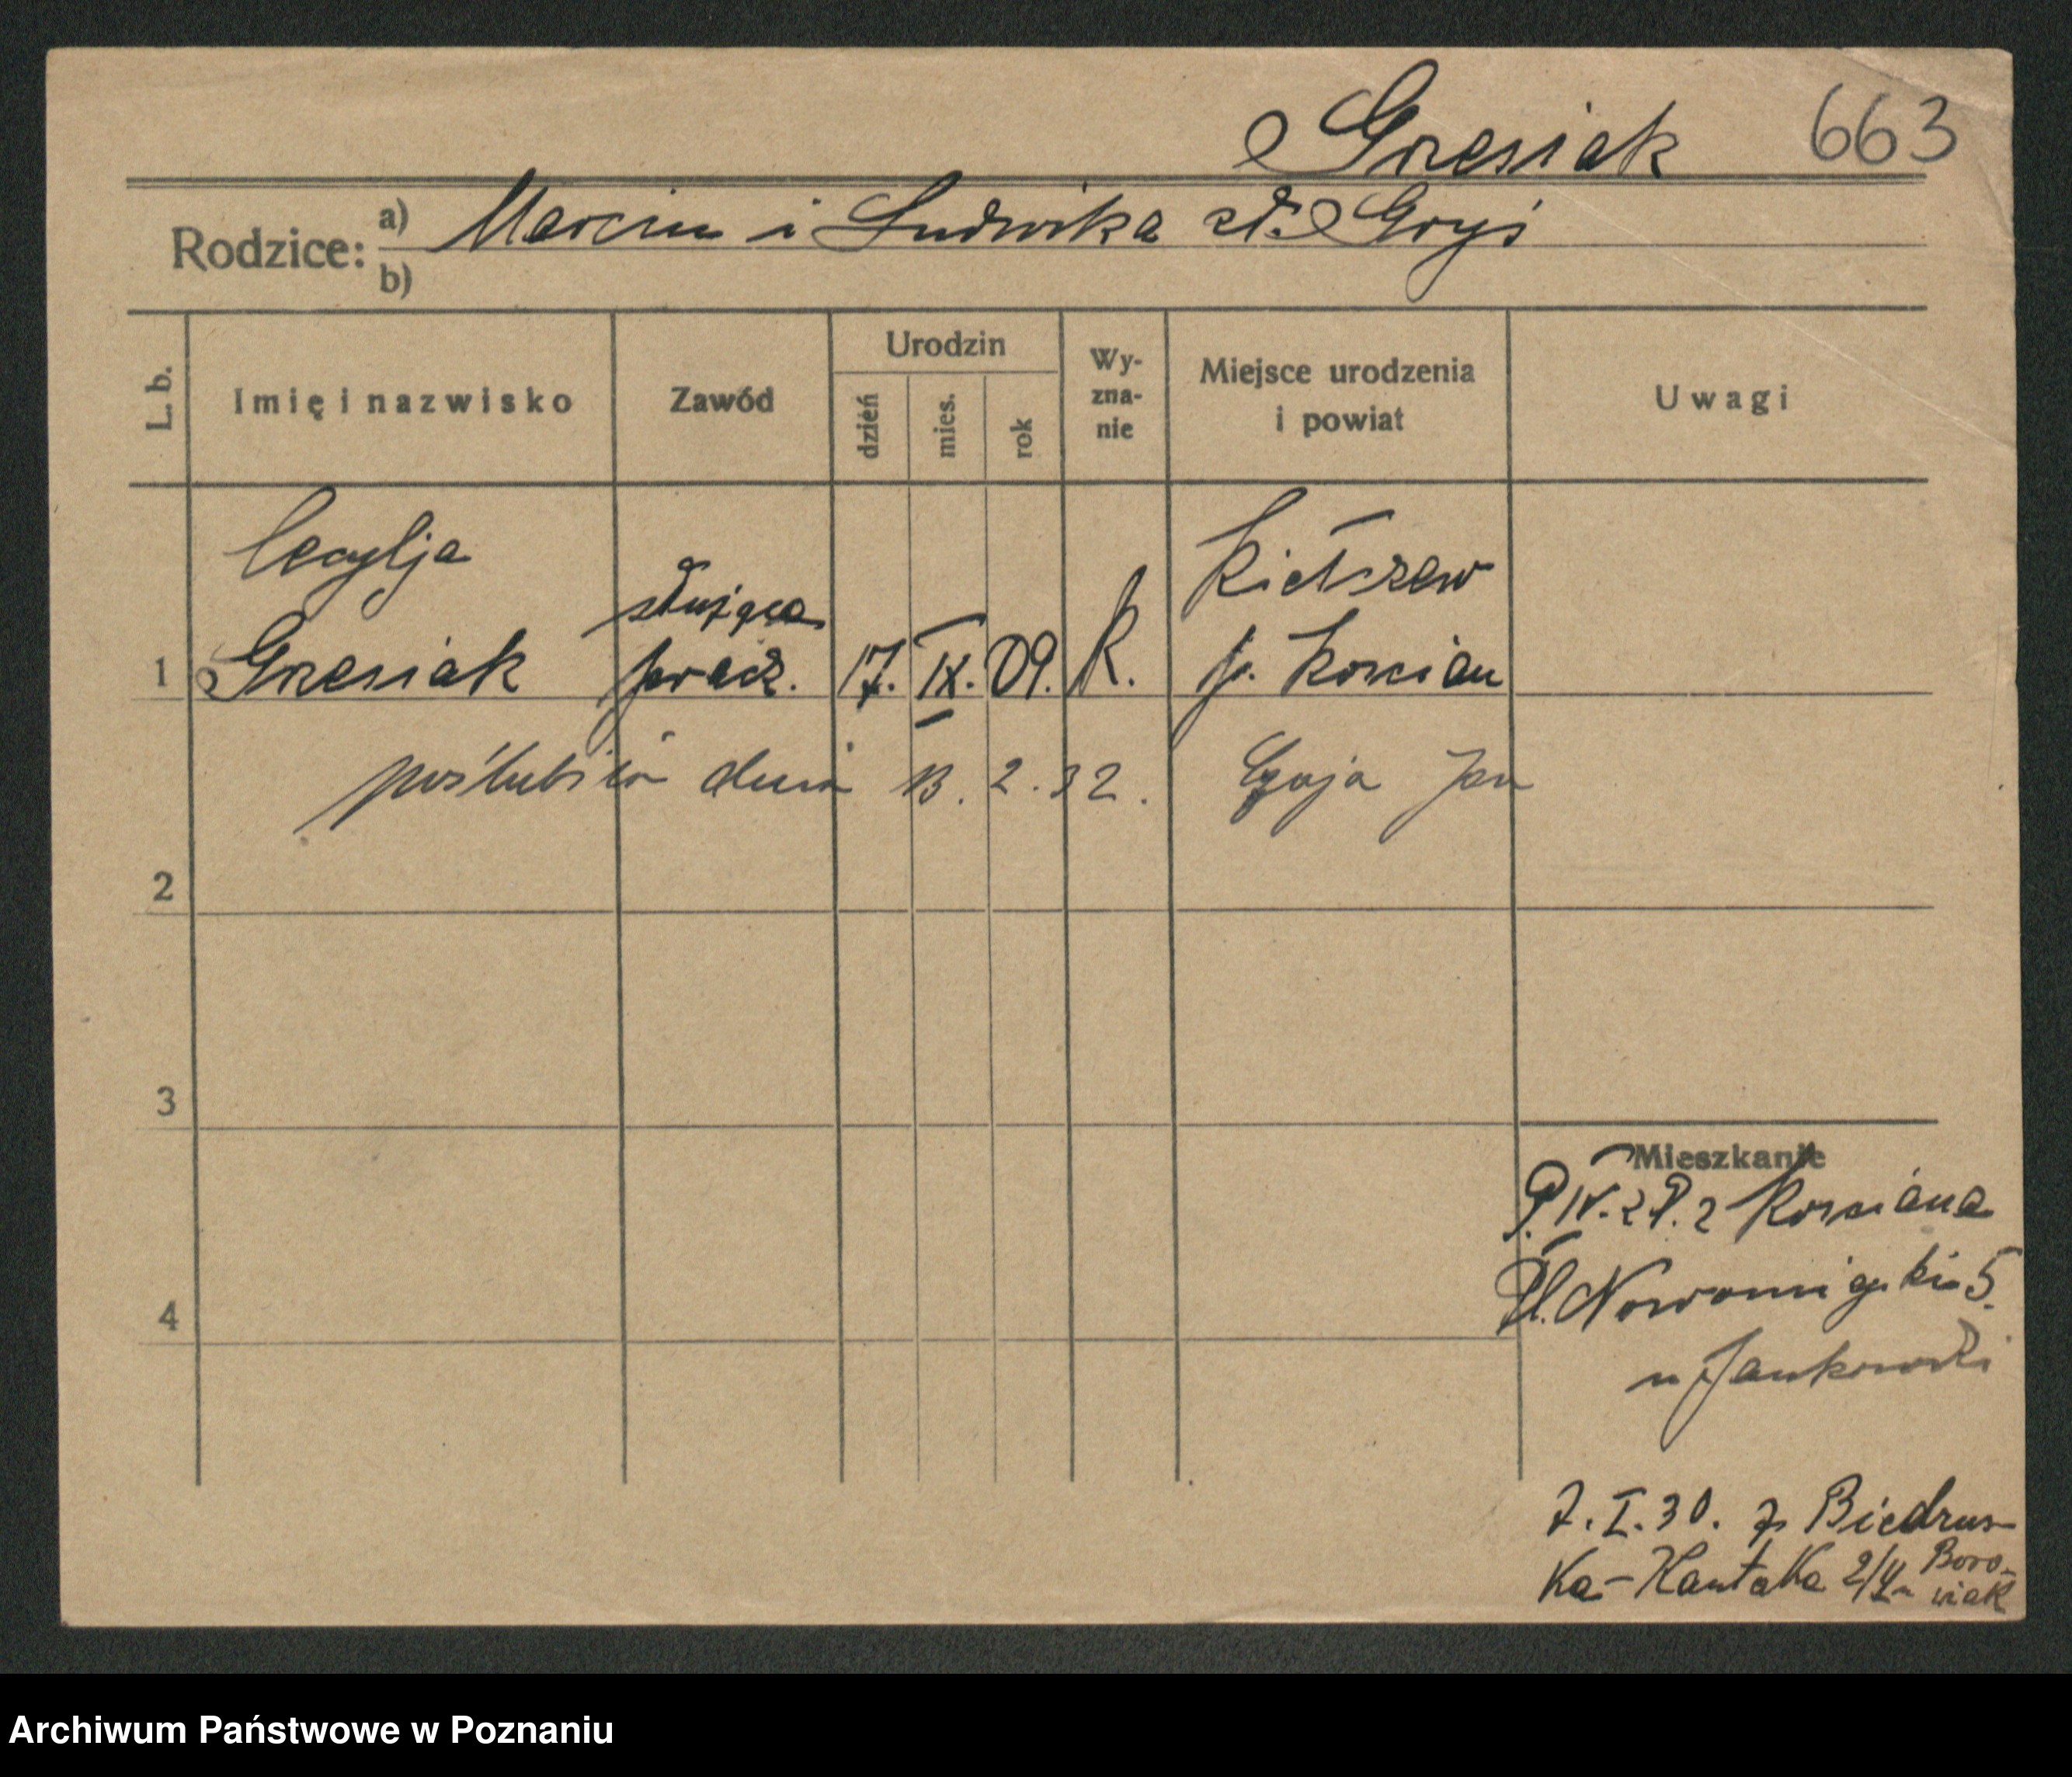 Grzesiak 663
Rodzice: a) Marcin i Ludwika zd. Gryś
b)
L. b. Imię i nazwisko Zawód Urodzin dzień mies. rok Wy-zna-nie Miejsce urodzenia i powiat Uwagi
Cecylja
służąca
Kiełczew
1 Grzesiak 17. IX. 09. K. p. Kościan
poślubiła dnia 13. 2. 32. Jan
2
3
Mieszkanie
Kościana
4
u Jankowski
7. I. 30. Biedrus-
ka - Kantaka 2/4 Boro-
wiak
Archiwum Państwowe w Poznaniu